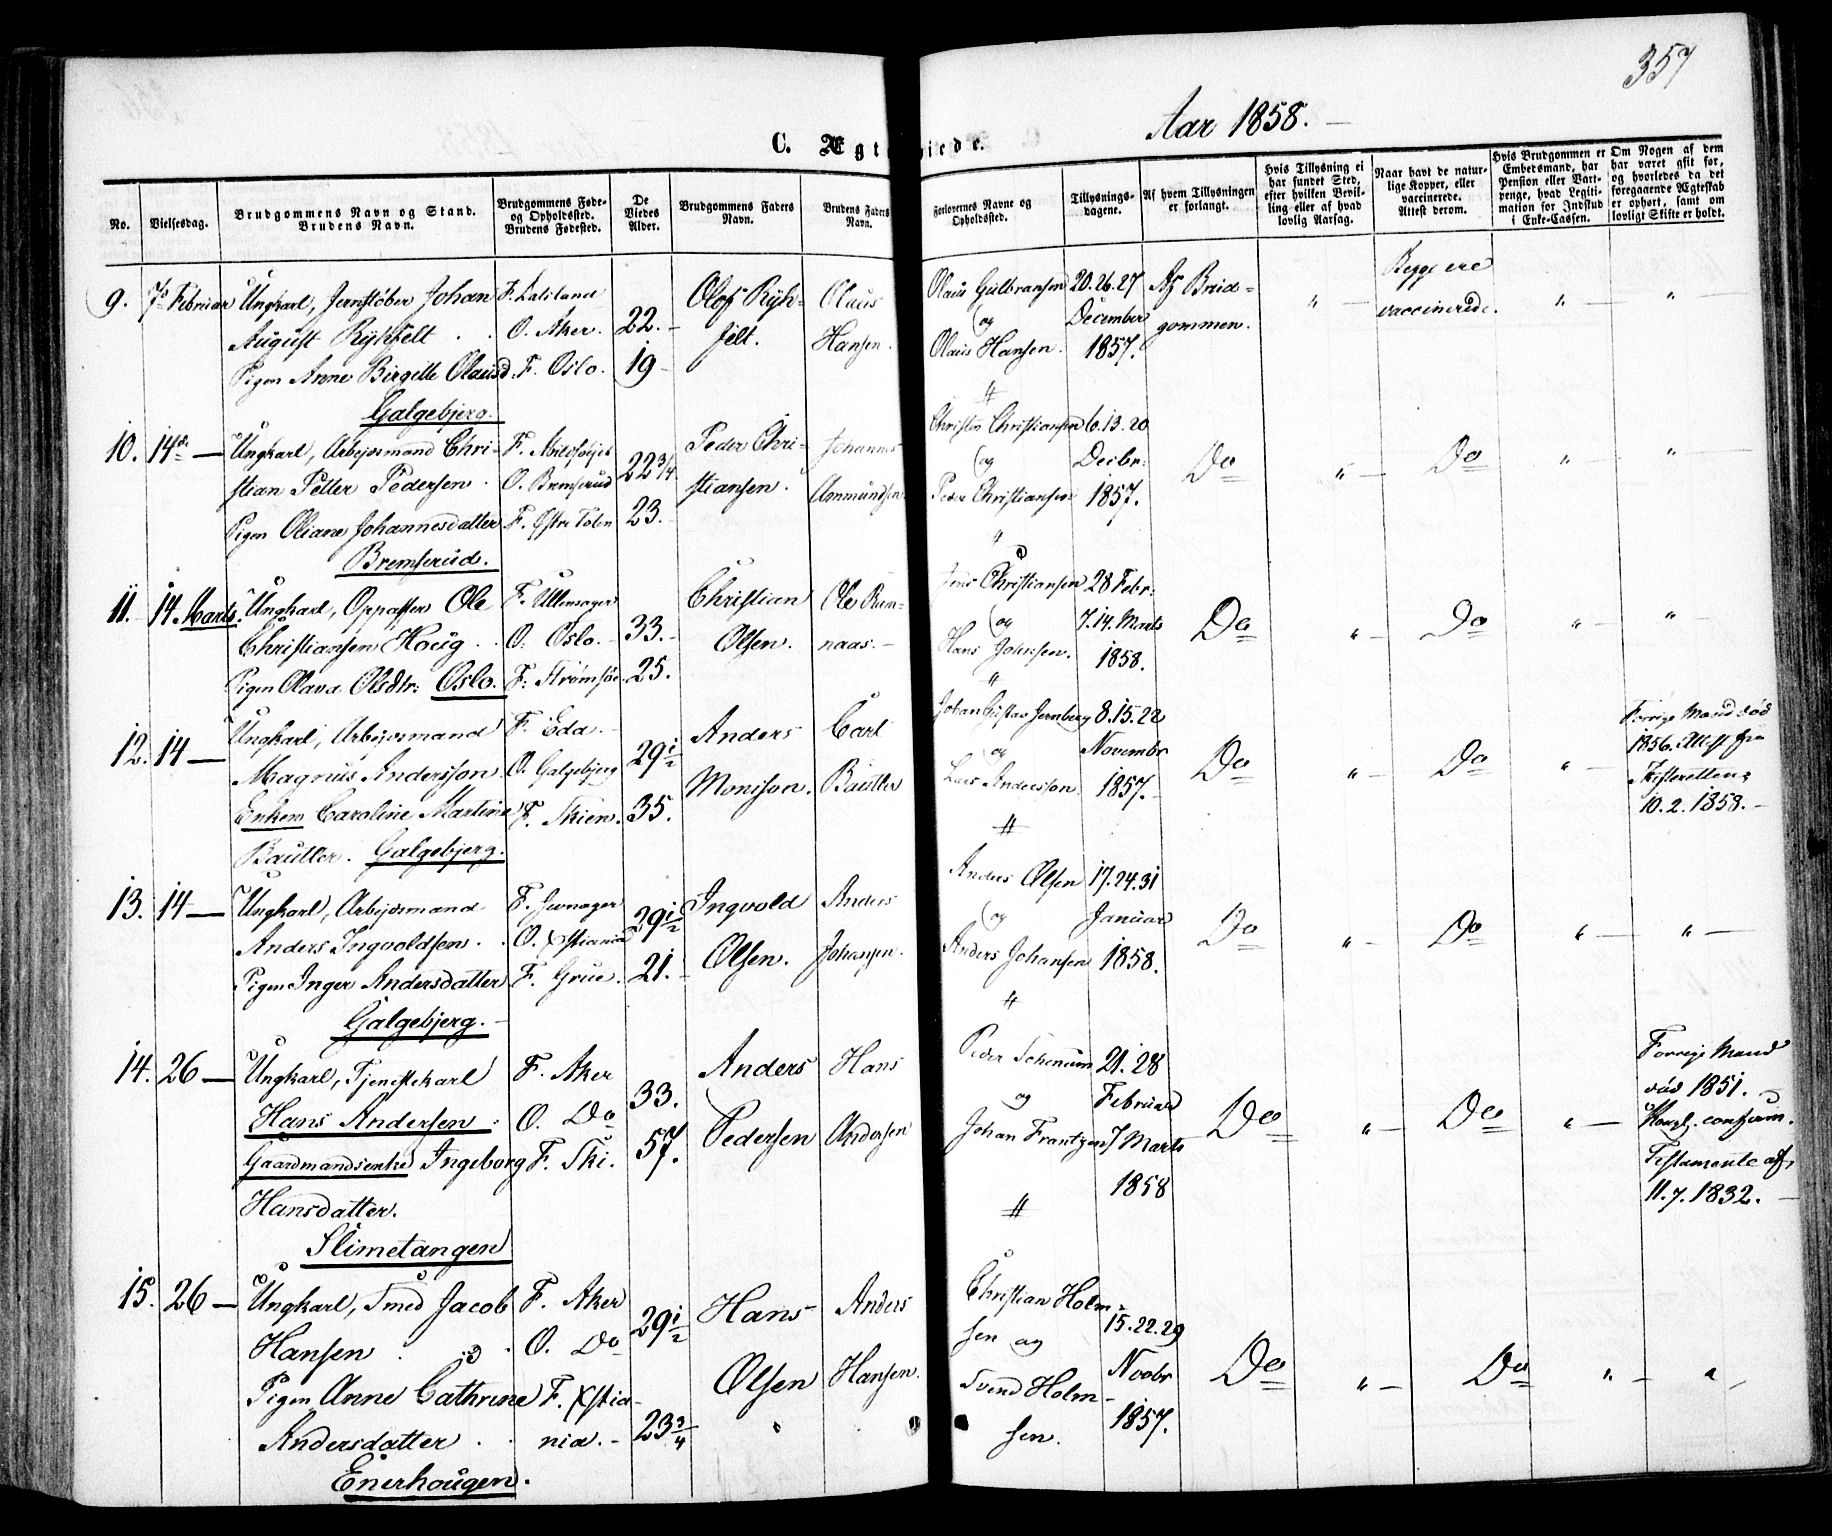 357
Aar 1858.
C. Ægteviede.
No.
Vielsesdag.
Brudgommens Navn og Stand.
Brudens Navn.
Brudgommens Føde-
og Opholdssted.
Brudens Fødested.
De
Viedes
Alder.
Brudgommens Faders
Navn.
Brudens Faders
Navn.
Forlovernes Navne og
Opholdssted.
Tillysnings-
dagene.
Af hvem Tillysningen
er forlangt.
Hvis Tillysning ei
har fundet Sted,
efter hvilken Bevil-
ling eller af hvad
lovlig Aarsag.
Naar havt de natur-
lige Kopper, eller
vaccinerede.
Attest derom.
Hvis Brudgommen er
Embedsmand, har
Pension eller Vart-
penge, hvad Legiti-
mation for Indskud
i Enke-Cassen.
Om Nogen af dem
har været gift før,
og hvorledes da det
foregaaende Ægteskab
er ophørt, samt om
lovligt Skifte er holdt.
9. 7de Februar
Ungkarl, Jernstøber Johan
August Rykfelt
Pigen Anne Birgitte Olausd.
Galgebjerg.
O. Aker.
F. Oslo.
22.
19
Olof Ryk-
felt.
Olaus
Hansen.
Olaus Gulbransen
og
Olaus Hansen.
20. 26. 27
December
1857.
Af Brud-
gommen.
"
Begge ere
vaccinerede.
"
"
10. 14de —
Ungkarl, Arbejdsmand Chri-
stian Petter Pedersen
Pigen Oliane Johannesdatter
Bremserud.
O. Bremserud
F. Østre Toten
22 3/4
23.
Peder Chri-
stiansen.
Johannes
Ammundsen
Christen Christiansen
og
Peder Christiansen
6. 13. 20
Decbr:
1857.
Do
"
Do
"
"
11. 14. Marts.
Ungkarl, Oppasser Ole
Christiansen Houg
Pigen Olava Olsdtr: Oslo.
F. Ullensager
O. Oslo.
F. Strømsøe
33.
25.
Christian
Olsen.
Ole Rum-
naas.
Jens Christiansen
og
Hans Johnsen.
28 Febr:
7. 14. Marts
1858.
Do
"
Do
"
"
12. 14 —
Ungkarl, Arbejdsmand
Magnus Andersson
Enken Caroline Martine
Bautler. Galgebjerg.
F. Eda.
O. Galgebjerg
F. Skien.
29 1/2
35.
Anders
Monsson.
Carl
Bautler
Johan Gustav Jernberg
og
Lars Andersson.
8. 15. 22
Novembr
1857.
Do
"
Do
"
Forrige Mand død
1856. Attest fra
Skifteretten
10. 2. 1858.
13. 14 —
Ungkarl, Arbejdsmand
Anders Ingvoldsen
Pigen Inger Andersdatter
Galgebjerg.
F. Jevnager
O. Xstiania
F. Grue.
29 1/2
21.
Ingvold
Olsen.
Anders
Johansen.
Anders Olsen
og
Anders Johansen
17. 24. 31
Januar
1858.
Do
"
Do
"
"
14. 26 —
Ungkarl, Tjenestekarl
Hans Andersen
Gaardmandsenke Ingeborg
Hansdatter.
Slimetangen
F. Aker
O. Do
F. Ski.
33.
57.
Anders
Pedersen
Hans
Andersen
Peder
og
Johan Frantzen
21. 28
Februar
7 Marts
1858
Do
"
Do
"
Forrige Mand
død 1851.
Kongl. confirm.
Testamente af
11. 7. 1832.
15. 26 —
Ungkarl, Smed Jacob
Hansen
Pigen Anne Cathrine
Andersdatter
Enerhougen.
F. Aker
O. Do
F. Xstia-
nia.
29 1/2
23 3/4
Hans
Olsen
Anders
Hansen.
Christian Holm-
sen og
Svend Holm-
sen.
15. 22. 29
Novbr
1857.
Do
"
Do
"
"